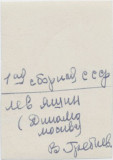 1ая сборная СССР
Лев Яшин
(Динамо
Москва)
В. Гребнев